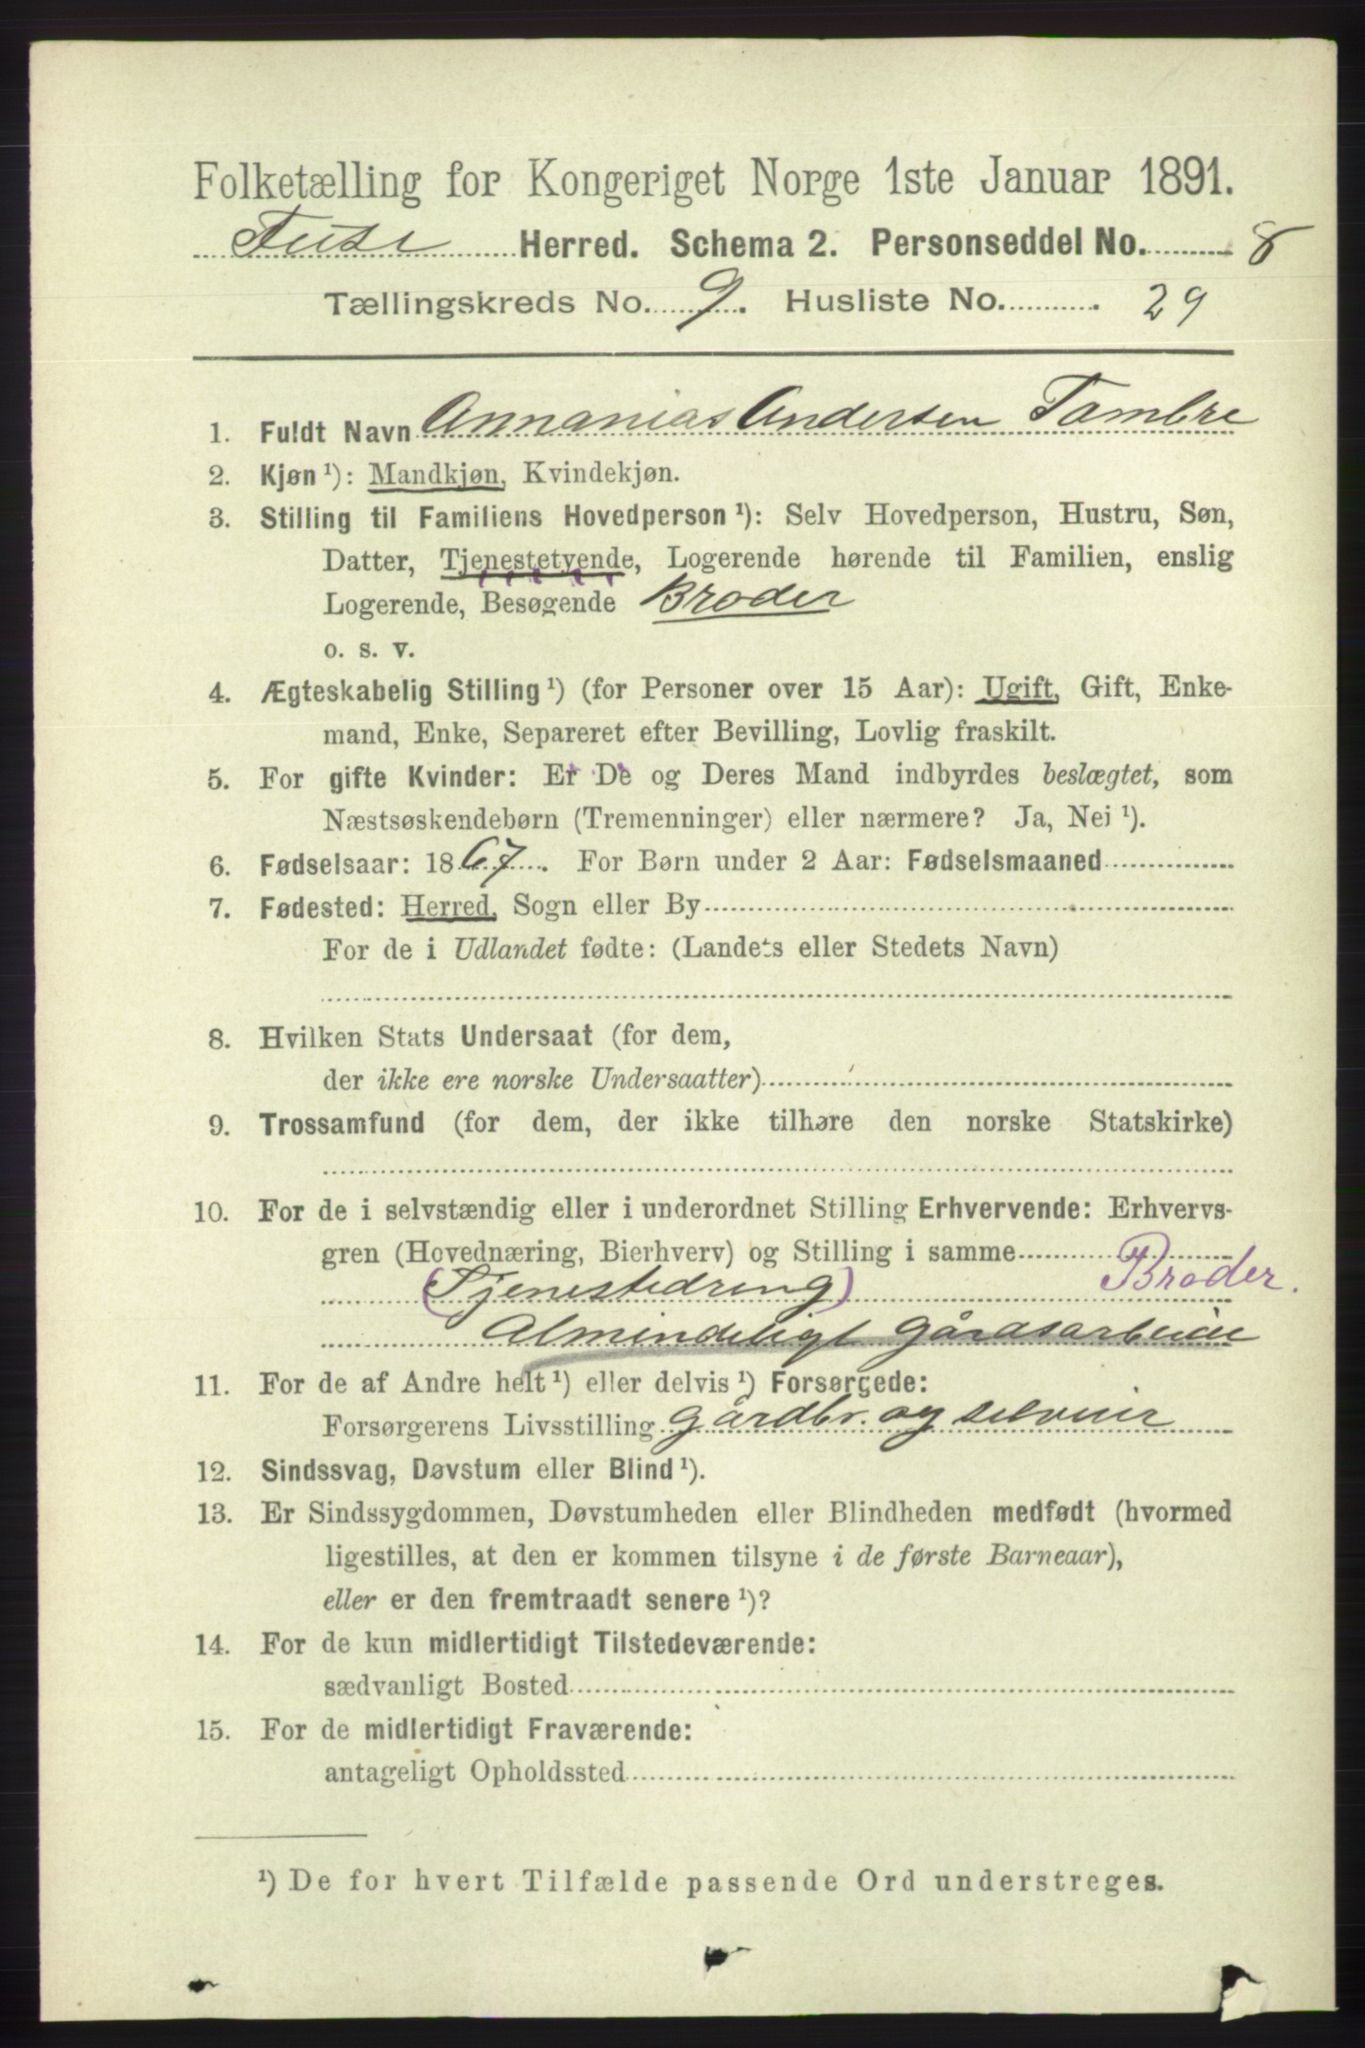 Folketælling for Kongeriget Norge 1ste Januar 1891.
Fuse Herred. Schema 2. Personseddel No. 8
Tællingskreds No. 9. Husliste No. 29
1. Fuldt Navn Annanias Andersen Tombre
2. Kjøn ¹): Mandkjøn, Kvindekjøn.
3. Stilling til Familiens Hovedperson ¹): Selv Hovedperson, Hustru, Søn,
Datter, Tjenestetyende, Logerende hørende til Familien, enslig
Logerende, Besøgende Broder
o. s. v.
4. Ægteskabelig Stilling ¹) (for Personer over 15 Aar): Ugift, Gift, Enke-
mand, Enke, Separeret efter Bevilling, Lovlig fraskilt.
5. For gifte Kvinder: Er De og Deres Mand indbyrdes beslægtet, som
Næstsøskendebørn (Tremenninger) eller nærmere? Ja, Nei ¹).
6. Fødselsaar: 1867. For Børn under 2 Aar: Fødselsmaaned
7. Fødested: Herred, Sogn eller By
For de i Udlandet fødte: (Landets eller Stedets Navn)
8. Hvilken Stats Undersaat (for dem,
der ikke ere norske Undersaatter)
9. Trossamfund (for dem, der ikke tilhøre den norske Statskirke)
10. For de i selvstændig eller i underordnet Stilling Erhvervende: Erhvervs-
gren (Hovednæring, Bierhverv) og Stilling i samme
(Tjenestedreng) Broder.
Almindeligt gårdsarbeide
11. For de af Andre helt ¹) eller delvis ¹) Forsørgede:
Forsørgerens Livsstilling Gårdbr. og selveier
12. Sindssvag, Døvstum eller Blind ¹).
13. Er Sindssygdommen, Døvstumheden eller Blindheden medfødt (hvormed
ligestilles, at den er kommen tilsyne i de første Barneaar),
eller er den fremtraadt senere ¹)?
14. For de kun midlertidigt Tilstedeværende:
sædvanligt Bosted
15. For de midlertidigt Fraværende:
antageligt Opholdssted
¹) De for hvert Tilfælde passende Ord understreges.